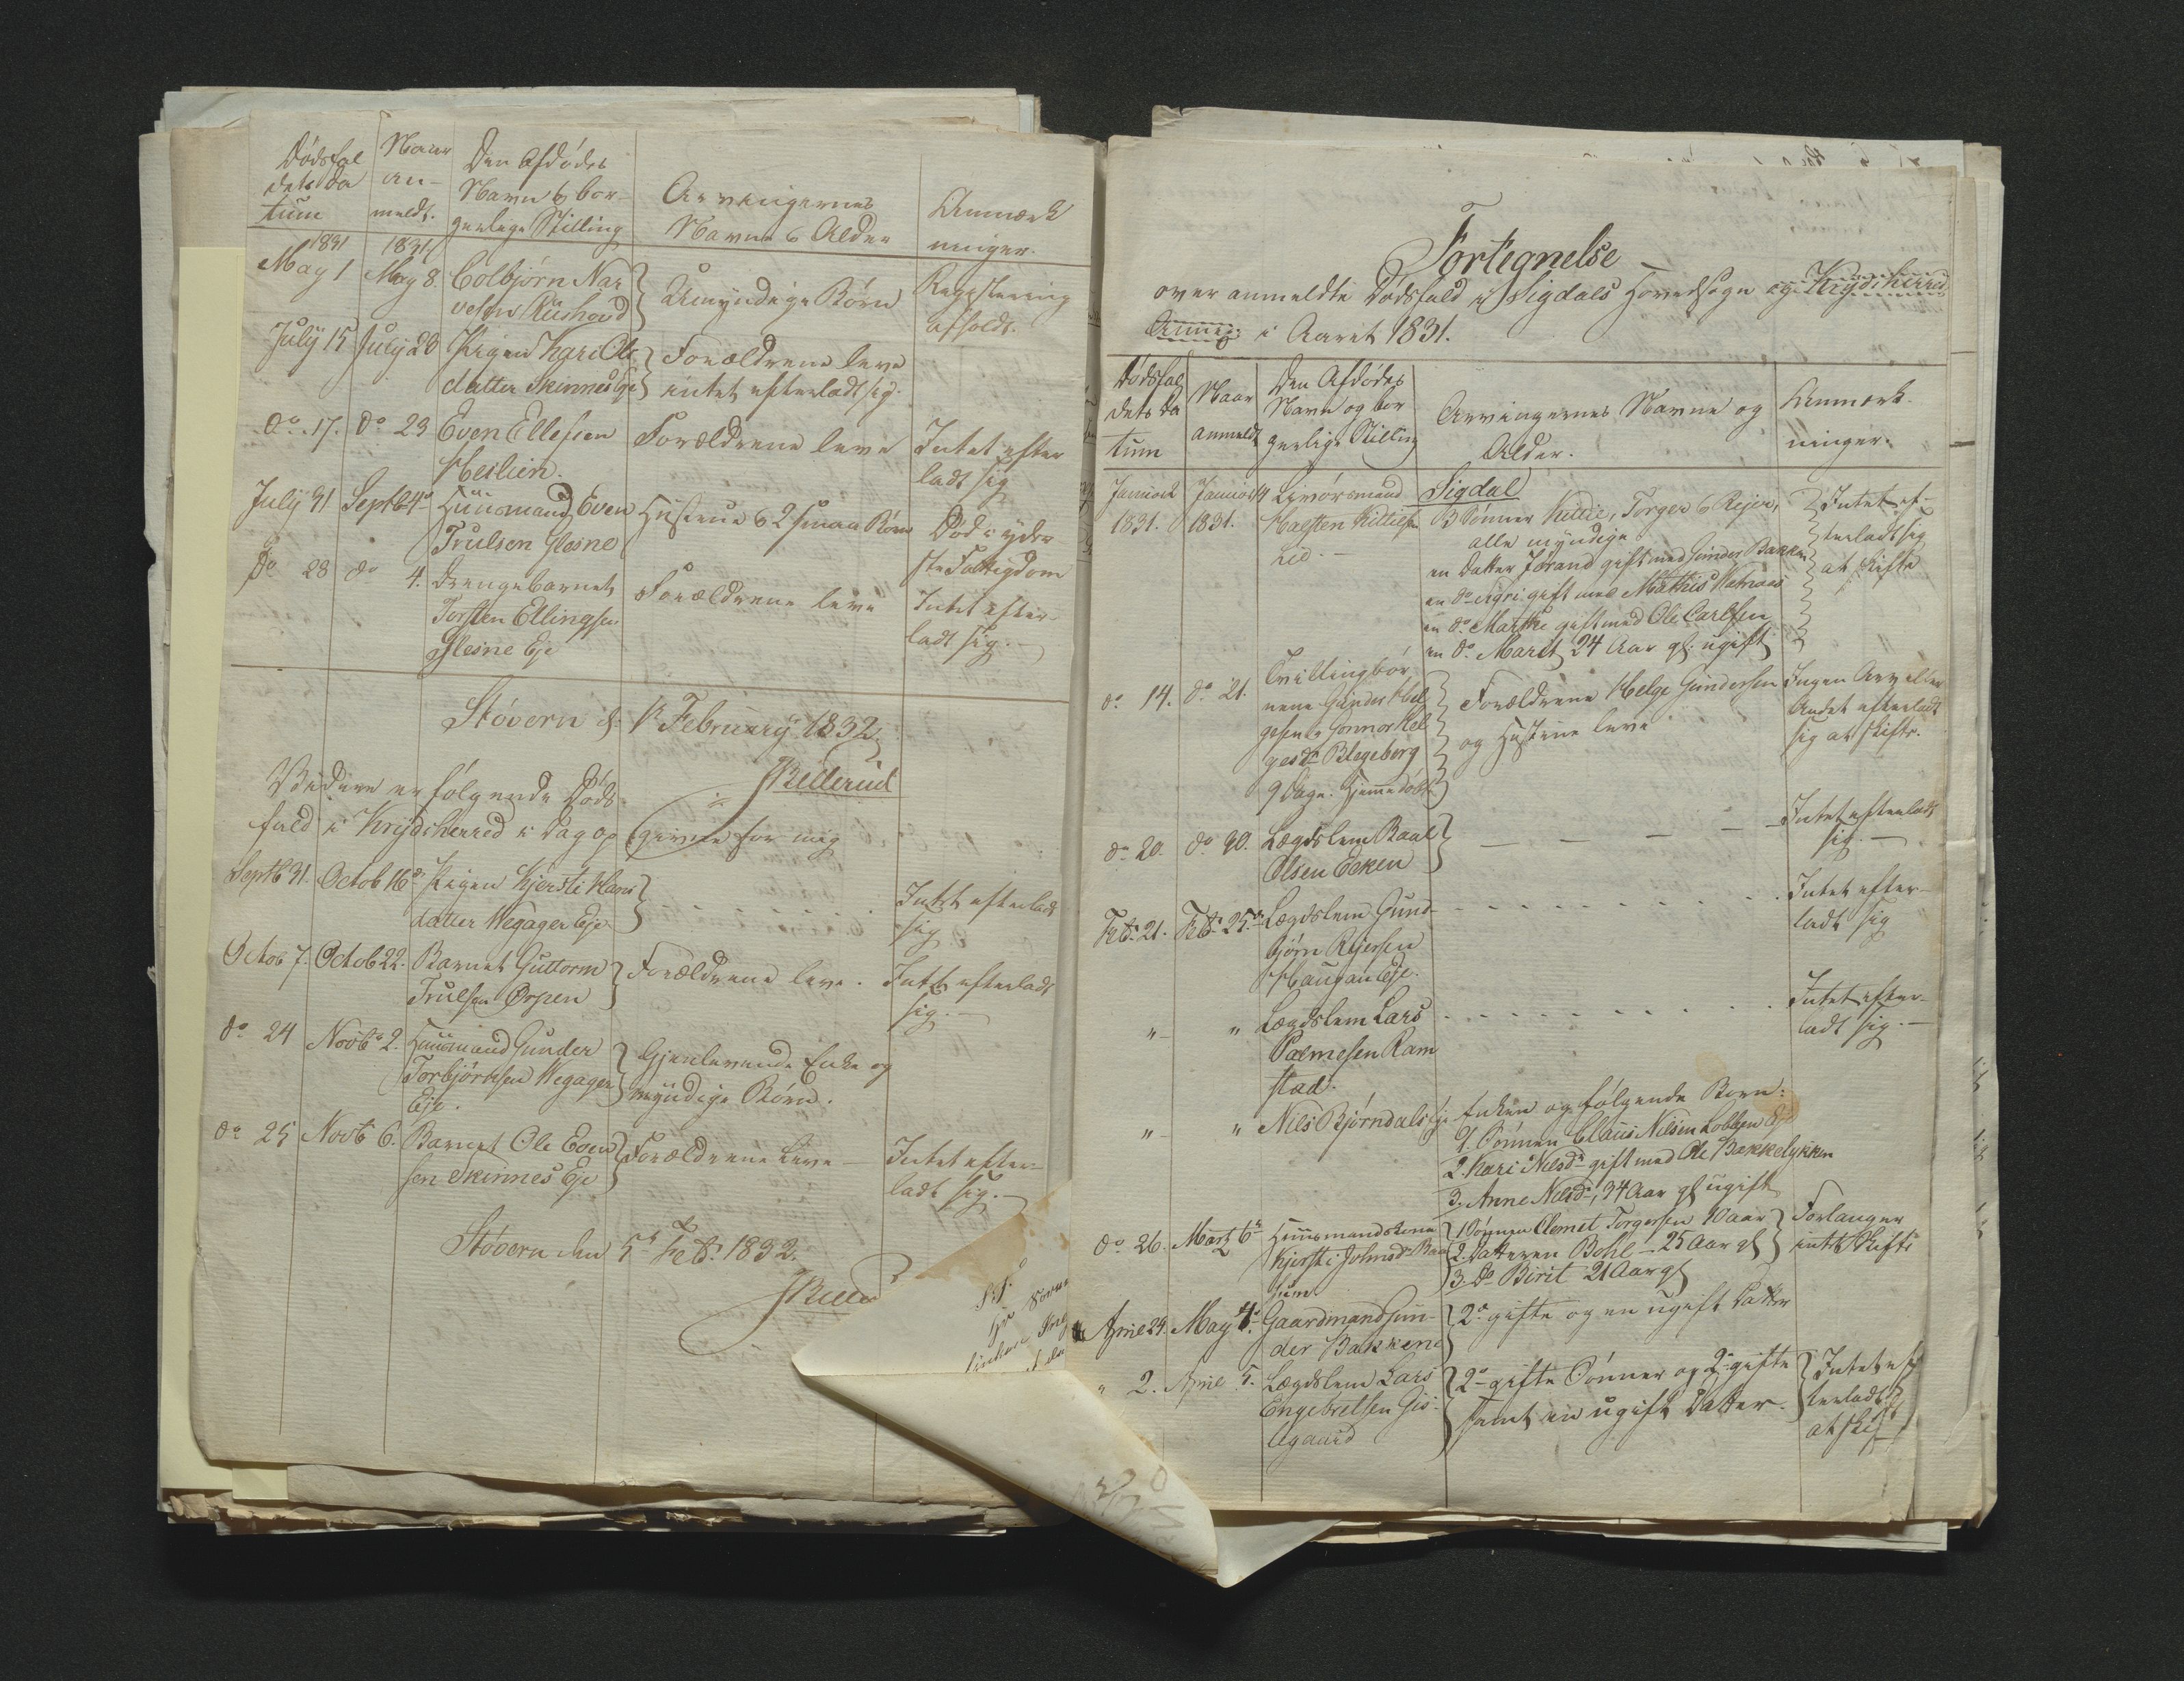 Dødsfal
dets Da
tum
Naar
an-
meldt.
Den Afdødes
Navn & bor-
gerlige Stilling
Arvingernes
Navne & Alder
Anmærk
ninger.
1831 1831
May 1 May 8. Colbjørn Nar
vesen Rushovd
Umyndige Børn
Registrering
afholdt.
July 15 July 20 Pigen Kari Ole
datter Skinnes Eje
Forældrene leve
intet efterladt sig.
do. 17. do 23 Even Ellefsen
Meslien.
Forældrene leve
Intet efter
ladt sig
July 31 Septb 4de Huusmand Even
Trulsen Glesne
Hustrue & 2 smaa Børn
Død i yder
ste Fattigdom
do 28 do 4. Drengebarnet
Torsten Ellingsen
Glesne Eje
Forældrene leve
Intet efter-
ladt sig.
Støvern d: 1ste February 1832
JBellerud
Videre er følgende Døds-
fald i Krydsherred i Dag op
givne for mig
Septb 31. Octob 16de Pigen Kjersti Hans
datter Wegager Eje
Intet efterladt
sig
Octob 7. Octob 22. Barnet Guttorm
Trulsen Ørpen
Forældrene leve.
Intet efterladt
sig.
do 24 Novb 2. Huusmand Gunder
Torbjørnsen Wegager
Eje.
Gjenlevende Enke og
myndige Børn.
do 25 Novb 6. Barnet Ole Even
sen Skinnes Eje
Forældrene Leve
Intet efter-
ladt sig.
Støvern den 5te Feb: 1832.
JBelle
S.T.
Hr
Fortegnelse
over anmeldte Dødsfald i Sigdals Hovedsogn og Krydsherred
Annex i Aaret 1831.
Dødsfal
dets Da
tum
Naar
anmeldt
Den Afdødes
Navn og bor
gerlige Stilling
Arvingernes Navne og
Alder.
Anmærk-
ninger.
Sigdal
Januar 2 Januar 4 Livørsmand
1831. 1831. Halsten Kittilsen
Lie.
3 Sønner Kittil, Torger & Rejer,
alle myndige
en Datter Jørand gift med Gunder Bakken
en do Sigri gift med Mathis Komaas
en do. Marthe gift med Ole Carlsen
en do. Marit 24 Aar gl. ugift
Intet ef-
terladt sig
at skifte
do. 14. do 21. Tvillingbør
nene Gunder Hel
gesen & Gonnor Hel
gesdr Blegeberg
9 Dage. Hjemmedøbt
Forældrene Helge Gundersen
og Hustrue leve
Ingen Arv eller
Andet efterladt
sig at skifte.
do 20. do 30. Lægdslem Baal
Olsen Ecken
Intet efterladt
sig.
Feb. 21. Feb. 25de Lægdslem Gund-
bjørn Rejersen
Haugan Eje.
Intet efter-
ladt sig
" " Lægdslem Lars
Palmesen Ram
stad.
Intet efter-
ladt sig.
" " Nils Bjørndals Eje
Enken og følgende Børn:
1. Sønnen Claus Nilsen Lobben Eje
2. Kari Nilsdr gift med Ole Bakkelykken
3. Anne Nilsdr, 34 Aar gl ugift
do. 26. Martz 6te Huusmandskone
Kjersti Johnsdr Baa
sum
1 Sønnen Clemet Torgersen 40 aar
2. Datteren Bohl 25 Aar gl
3. do Birit 21 Aar gl
Forlanger
intet Skifte
April 24. May 4de Gaardmand Gun-
der Bakkene
2de gifte og en ugift Datter
" 2. April 5. Lægdslem Lars
Engebretsen Gis-
agaard
2de gifte Sønner og 2de gifte
samt en ugift Datter.
Intet ef
terladt
at skif